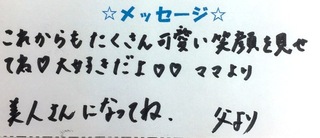 ☆メッセージ☆
これからも たくさん可愛い笑顔を見せ
てね♡大好きだよ♡♡ ママより
美人さんになってね. 父より